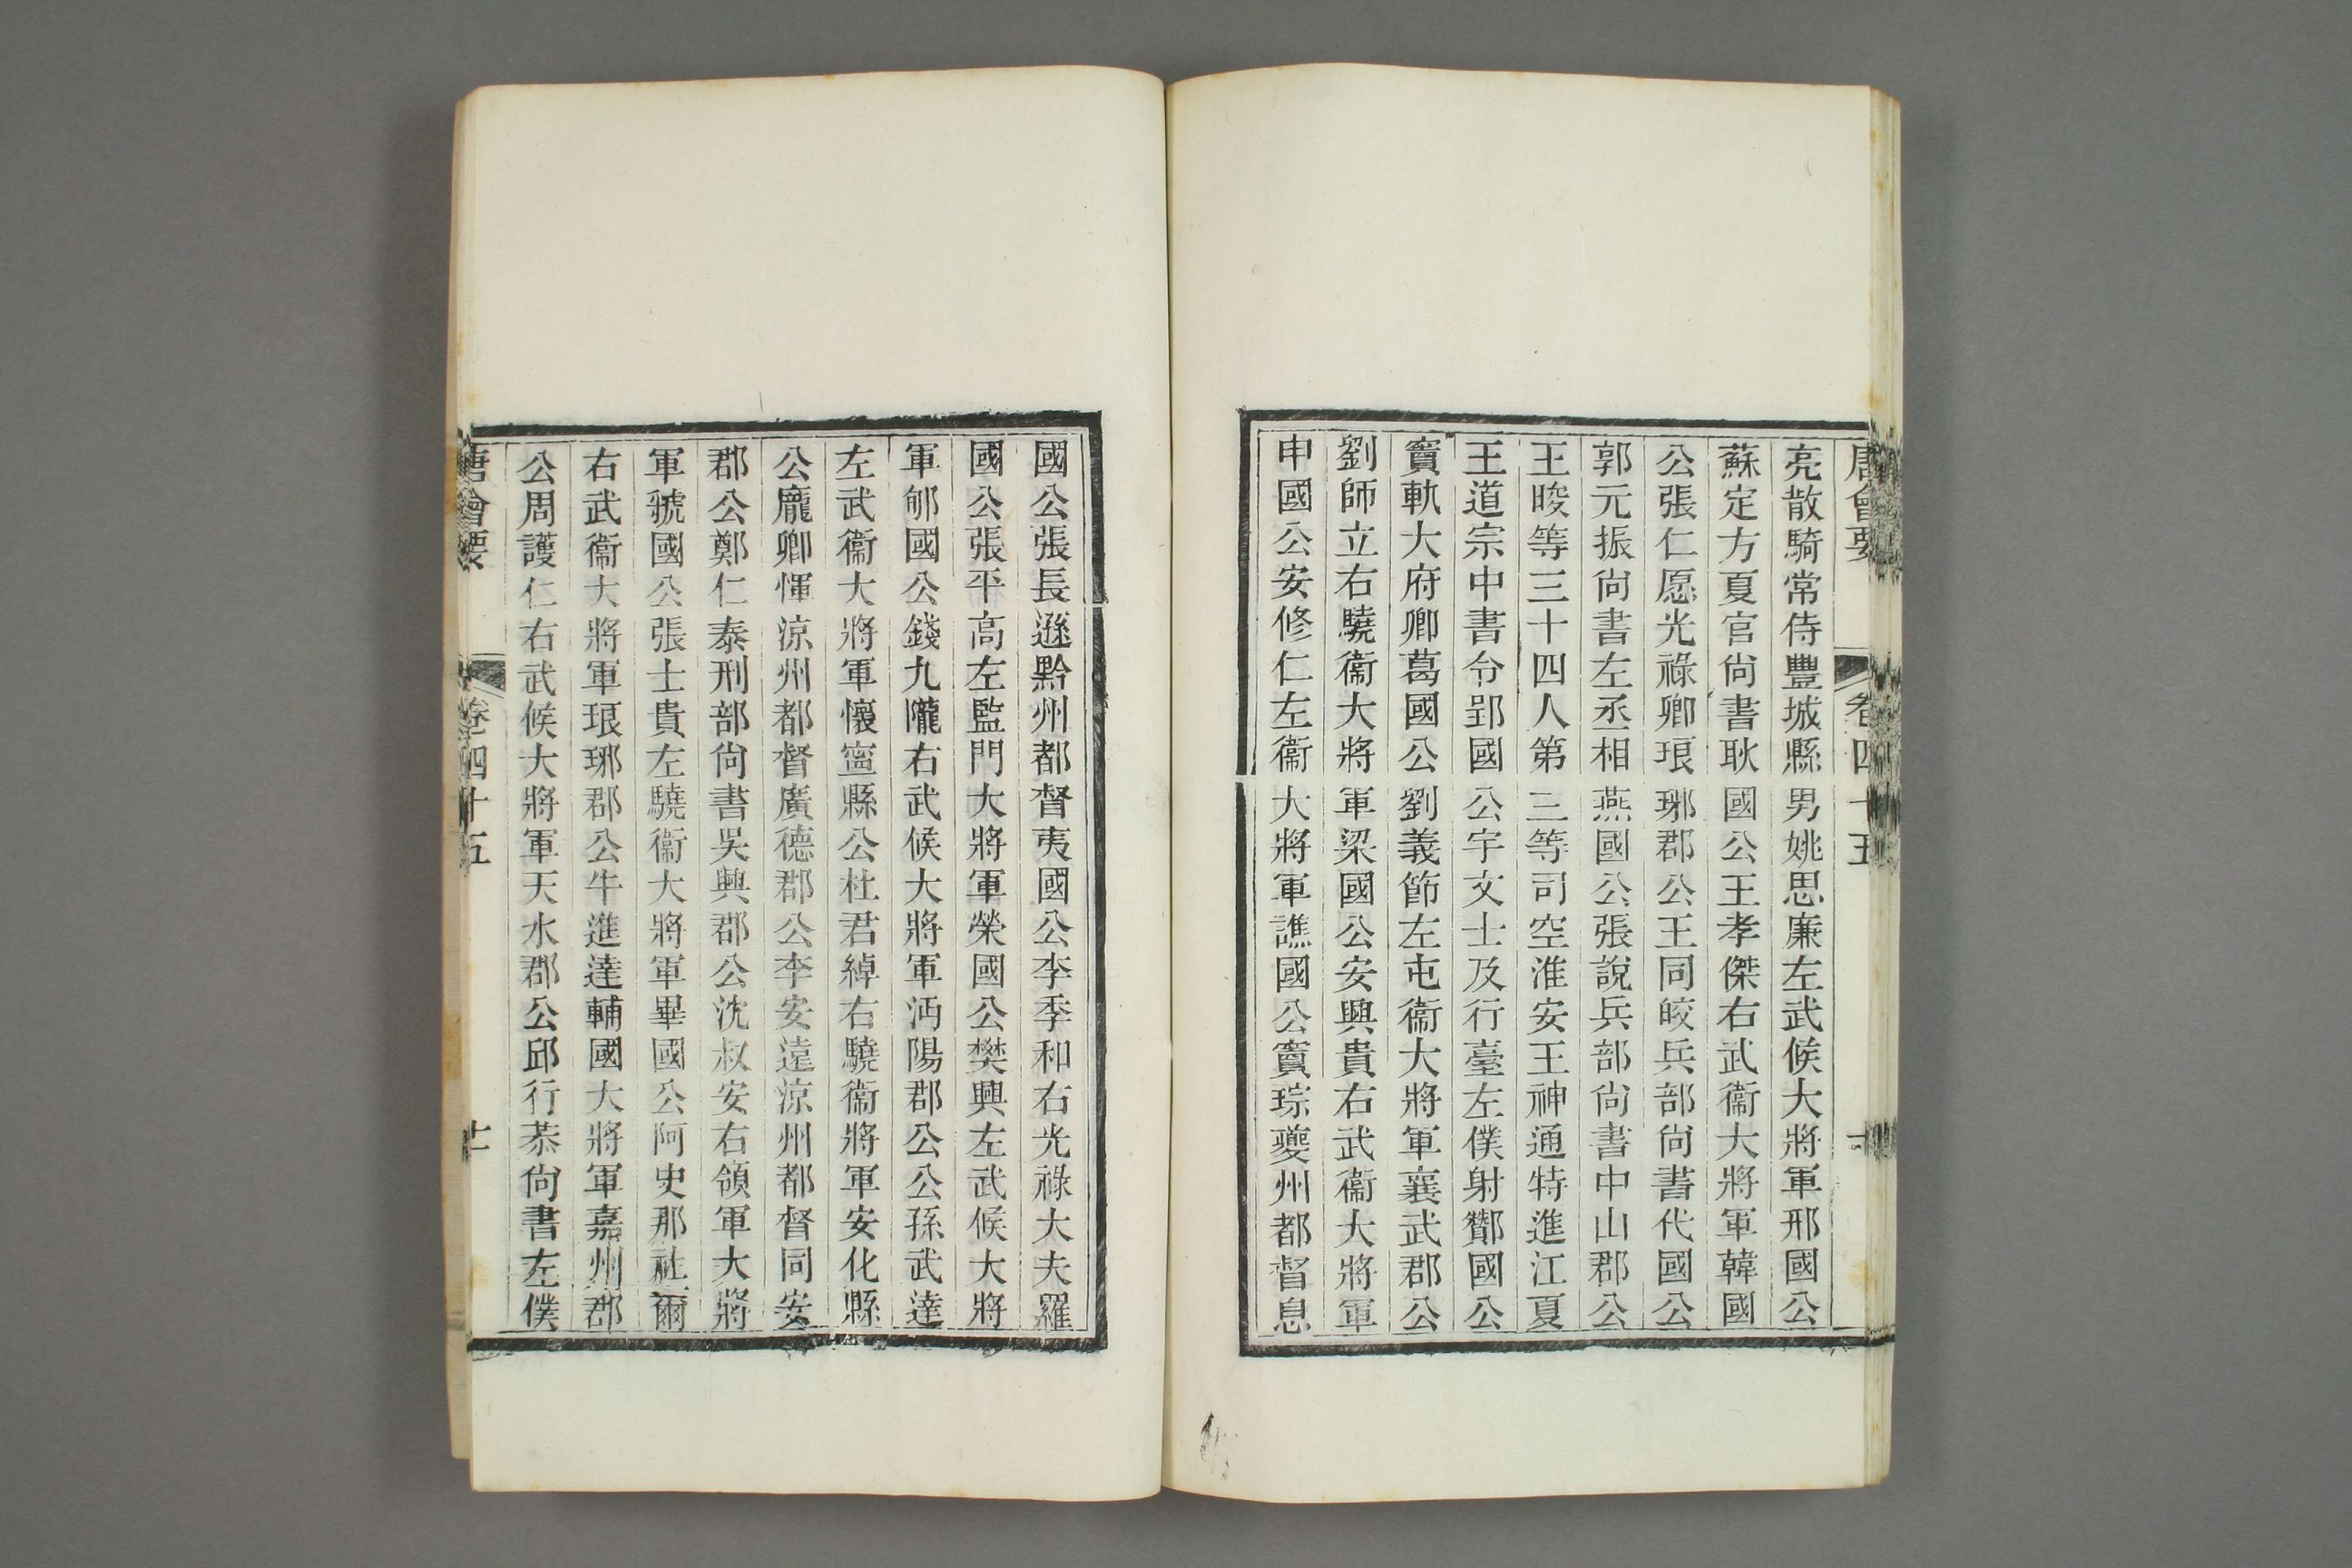 唐會要 卷四十五 十
亮散騎常侍豐城縣男姚思廉左武候大將軍邢國公
蘇定方夏官尚書耿國公王孝傑右武衞大將軍韓國
公張仁愿光祿卿琅琊郡公王同皎兵部尚書代國公
郭元振尚書左丞相燕國公張說兵部尚書中山郡公
王晙等三十四人第三等司空淮安王神通特進江夏
王道宗中書令郢國公宇文士及行臺左僕射酇國公
竇軌大府卿葛國公劉義節左屯衞大將軍襄武郡公
劉師立右驍衞大將軍梁國公安興貴右武衞大將軍
申國公安修仁左衞大將軍譙國公竇琮夔州都督息
國公張長遜黔州都督夷國公李季和右光祿大夫羅
國公張平高左監門大將軍榮國公樊興左武候大將
軍郇國公錢九隴右武候大將軍沔陽郡公公孫武達
左武衞大將軍懷寧縣公杜君綽右驍衞將軍安化縣
公龐卿惲涼州都督廣德郡公李安遠涼州都督同安
郡公鄭仁泰刑部尚書吳興郡公沈叔安右領軍大將
軍虢國公張士貴左驍衞大將軍畢國公阿史那社爾
右武衞大將軍琅琊郡公牛進達輔國大將軍嘉州郡
公周護仁右武候大將軍天水郡公邱行恭尚書左僕
唐會要 卷四十五 十一